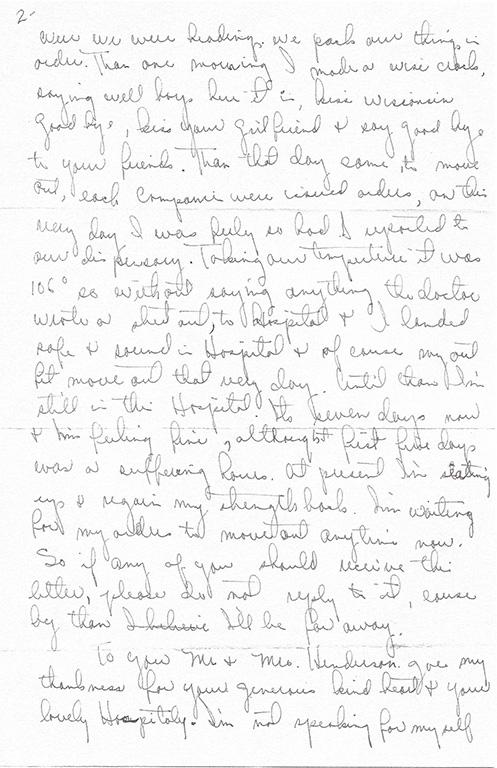 2-
were we were heading. we pack our things in
order. Than one mourning I made a wise crack,
saying well boys here it is, kiss Wisconsin
Good bye, kiss your girlfriend & say good bye
to your friends. Than that day came, to move
out, each Companie were issued orders, on this
very day I was feely so bad I reported to
our dispensory. Taking our tempature it was
106° so without saying anything the doctor
wrote a sheet out, to Hospital & I landed
safe & sound in Hospital & of cause my out
fit move out that very day. Until than I'm
still in this Hospital. Its seven days now
& I'm feeling fine, althought first five days
was a suffering hours. At present I'm seating
up & regain my strength back. I'm waiting
for my orders to move out anytime now.
So if any of you should receive this
letter, please do not reply to it, cause
by than I believe I'll be far away.
To you Mr & Mrs. Henderson. goes my
thankness for your generous kind heart & your
lovely Hospitaly. I'm not speaking for my self